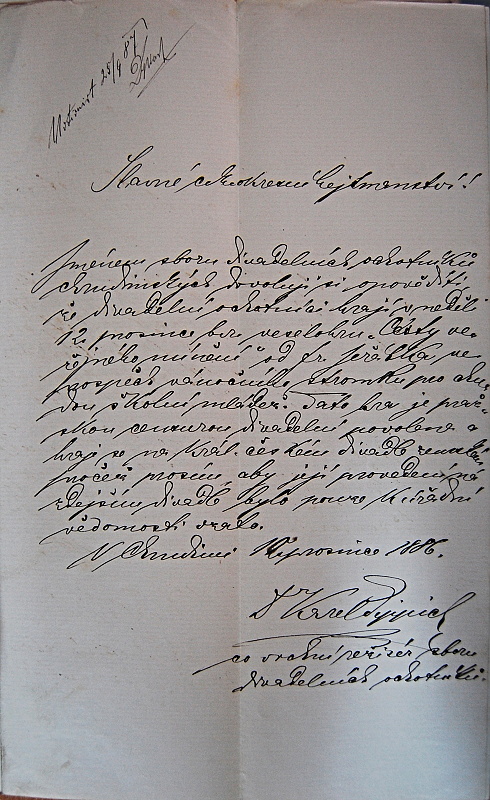 25/9 87
Slavné c.k. okresní hejtmanství!
Jménem sboru divadelních ochotníků
chrudimských dovoluji si opověděti,
že divadelní ochotníci hrají v neděli
12. prosince b.r. veselohru „Cesty ve-
řejného mínění" od Fr. Jeřábka, ve
prospěch vánočního stromku pro chu-
dou školní mládež. Tato hra je praž-
skou censurou divadelní povolena a
hraje se na král. českém divadle zemském,
pročež prosím, aby její provedení na
zdejším divadle bylo pouze k úřední
vědomosti vzato.
V Chrudimi prosince 1886.
Dr Karel Pippich
co vrchní režisér sboru
divadelních ochotníků.